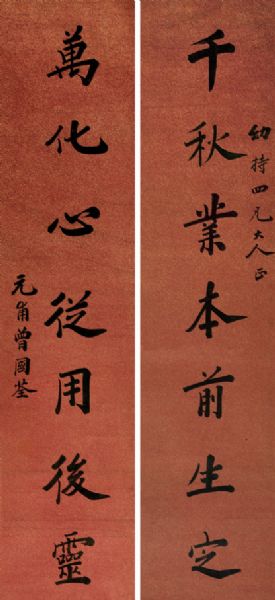 幼持四兄大人正
千秋業本前生定
萬化心從用後靈
元甫曾國荃